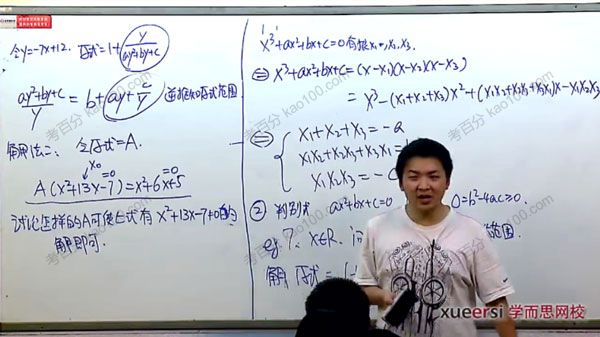 令y=-7x+12. 原式=1+ y/(ay²+by+c)
(ay²+by+c)/y = b+ay+c/y 逆推知原式范围
解法二: 令原式=A.
x₀
A(x²+13x-7)=x²+6x+5
=0 =0
讨论怎样的A可使上式有x²+13x-7≠0的
解即可.
x³+ax²+bx+c=0有根x₁,x₂,x₃.
⇔ x³+ax²+bx+c=(x-x₁)(x-x₂)(x-x₃)
=x³-(x₁+x₂+x₃)x²+(x₁x₂+x₂x₃+x₃x₁)x-x₁x₂x₃
⇔ x₁+x₂+x₃=-a
x₁x₂+x₂x₃+x₃x₁=
x₁x₂x₃=-c
② 判别式 ax²+bx+c=0 Δ=b²-4ac≥0.
eg7. x∈R. 问 范围.
解 原式=1+
考百分 kao100.com
xueersi 学而思网校